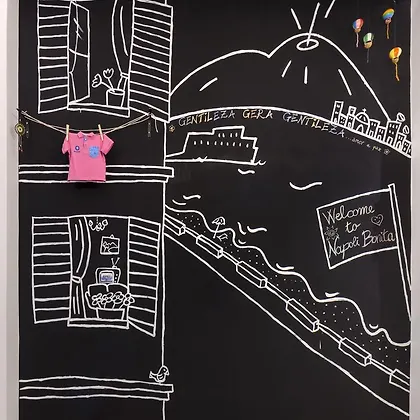 GENTiLEZA GERA GENTiLEZA
amor e paz
Welcome
to
Napoli Bonita